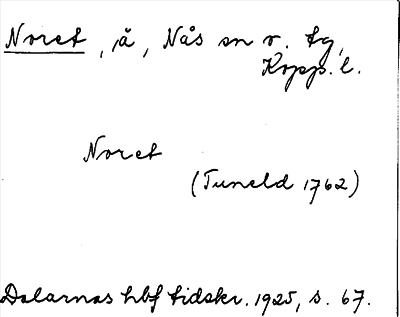 Noret, å, Nås sn v. tg,
Kopp. l.
Noret
(Tuneld 1762)
Dalarnas hbf tidskr. 1925, s. 67.